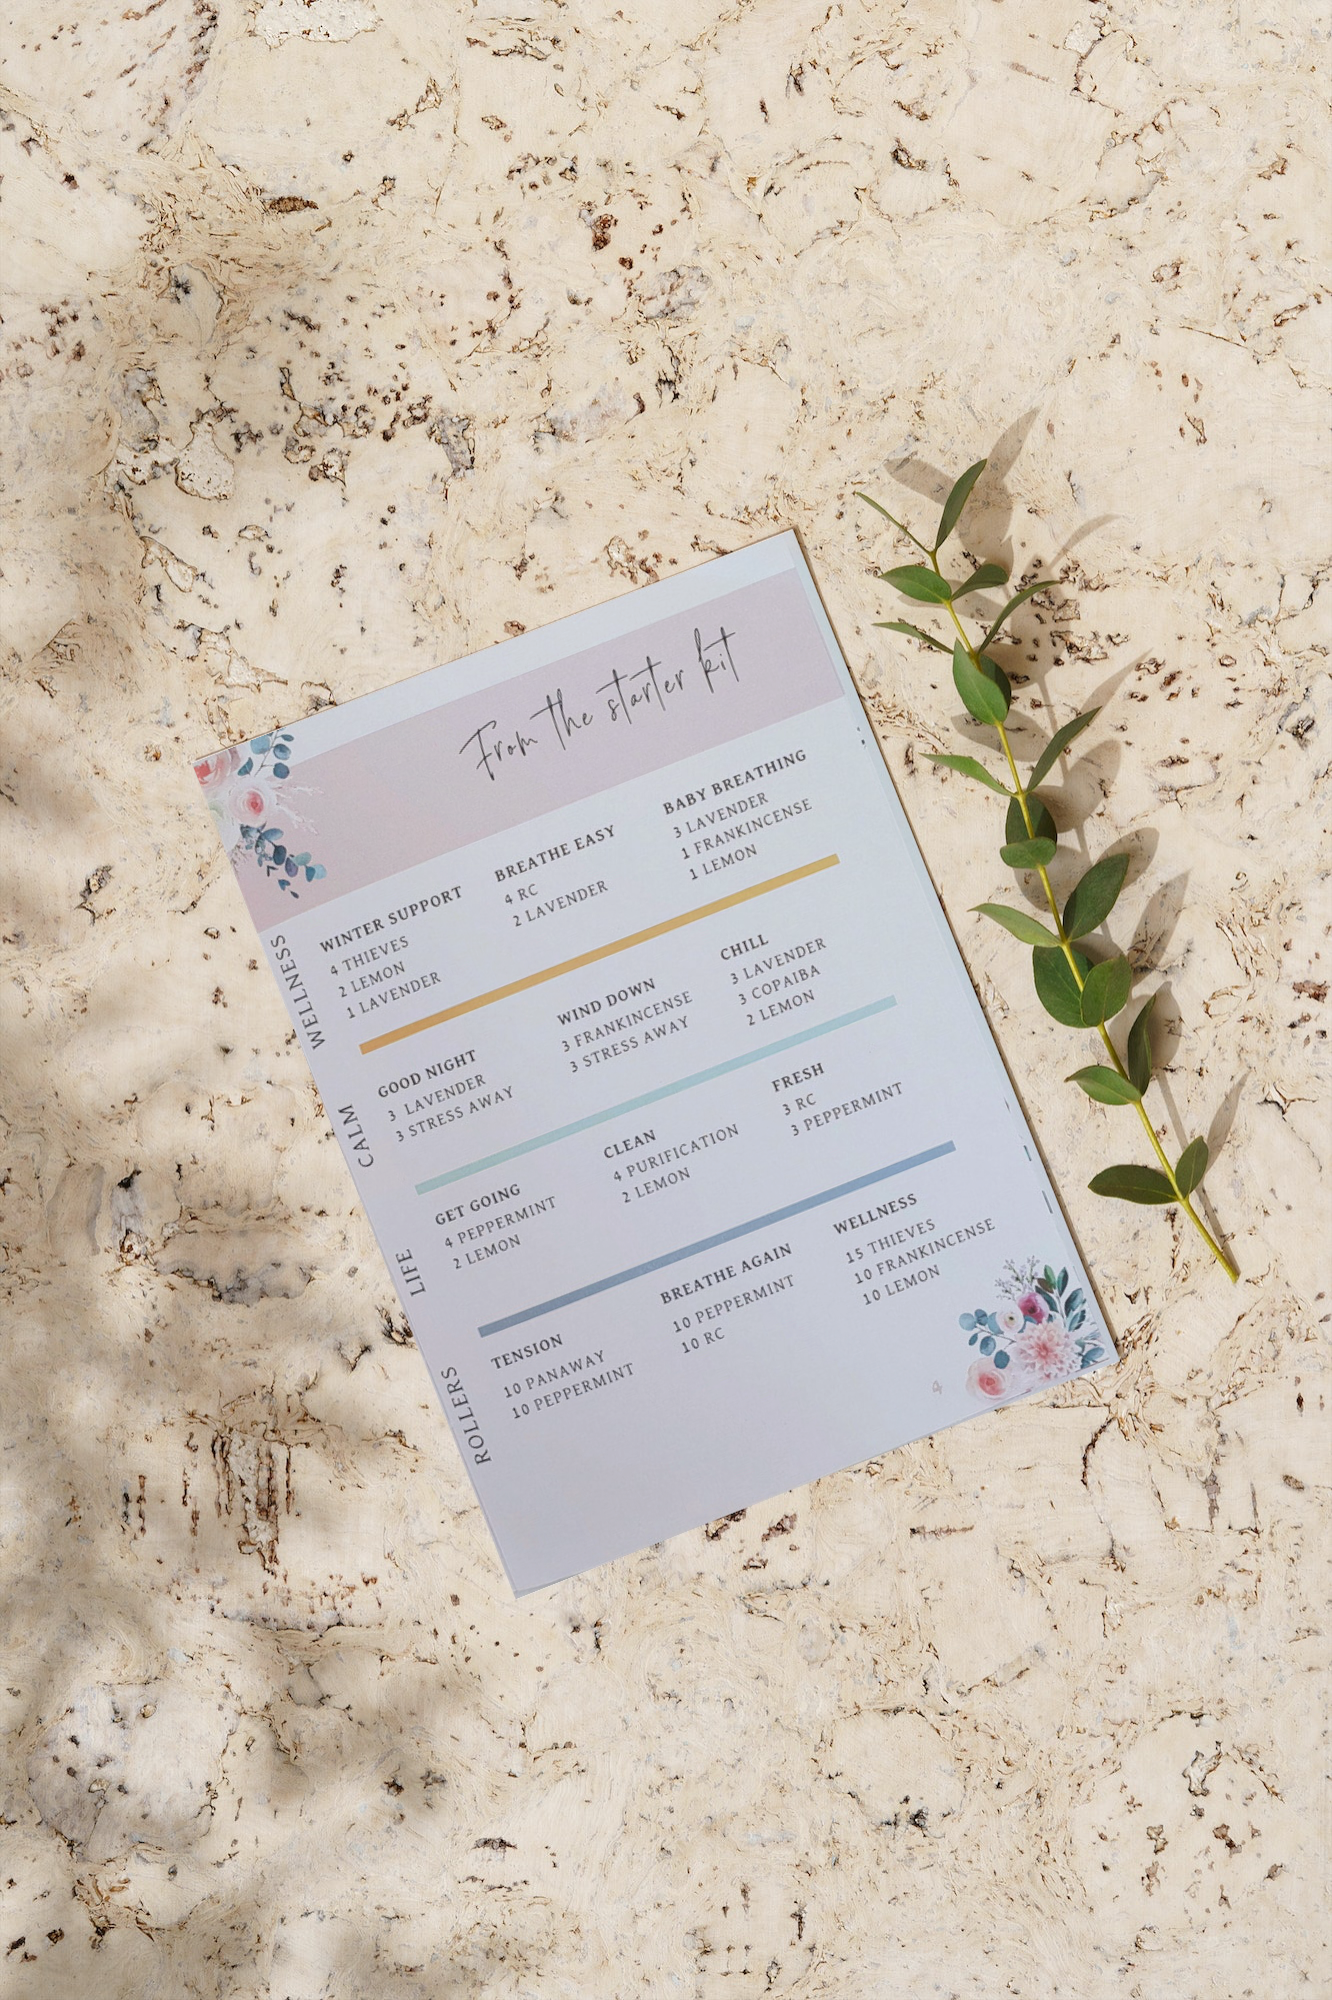 From the starter kit
WELLNESS
WINTER SUPPORT
4 THIEVES
2 LEMON
1 LAVENDER
BREATHE EASY
4 RC
2 LAVENDER
BABY BREATHING
3 LAVENDER
1 FRANKINCENSE
1 LEMON
CALM
GOOD NIGHT
3 LAVENDER
3 STRESS AWAY
WIND DOWN
3 FRANKINCENSE
3 STRESS AWAY
CHILL
3 LAVENDER
3 COPAIBA
2 LEMON
LIFE
GET GOING
4 PEPPERMINT
2 LEMON
CLEAN
4 PURIFICATION
2 LEMON
FRESH
3 RC
3 PEPPERMINT
ROLLERS
TENSION
10 PANAWAY
10 PEPPERMINT
BREATHE AGAIN
10 PEPPERMINT
10 RC
WELLNESS
15 THIEVES
10 FRANKINCENSE
10 LEMON